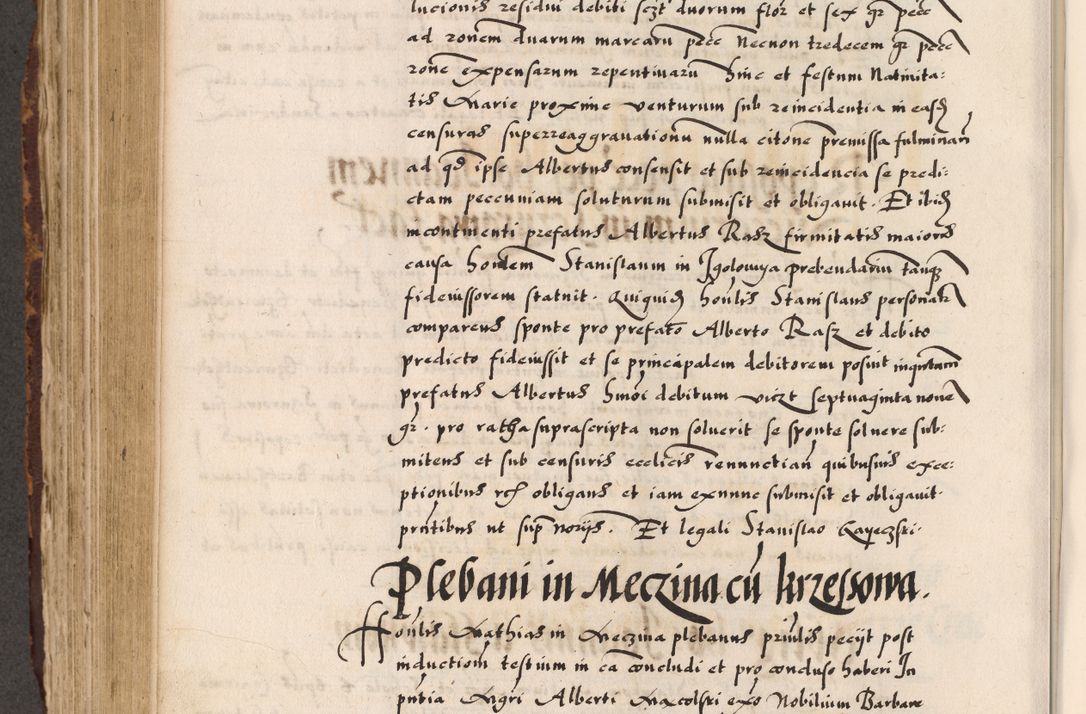 lucionis residui debiti sczt duorum flor et sex gr pecc
ad ronem duarum marcaru pecc Necnon tredecem gr pecc
rone expensarum repentivaru hinc et festum Natiuita:
tis Marie proxime venturum sub reincidentia in easd
censuras superreaggrauationu nulla citone premissa fulminan
ad qd ipse Albertus consensit et sub reincidencia se predi:
ctam peccuniam soluturum submisit et obligauit. Et ibid
incontinenti prefatus Albertus Rasz firmitatis maioris
causa honlem Stanislaum in Igolomya prebendariu tanq
fideiussorem statuit. Quiquid honlis Stanislaus personalr
comparens sponte pro prefato Alberto Rasz et debito
predicto fideiussit et se principalem debitorem posuit inquantum
prefatus Albertus hmoi debitum viczt septuaginta nouem
gr. pro ratha suprascripta non soluerit se sponte soluere sub:
mitens et sub censuris ecclicis renunctian quibusuis exce:
ptionibus rc obligans et iam exnunc submisit et obligauit.
pntibus ut sup norijs. Et legali Stanislao Kayeczski.
Plebani in Meczina cu krzessowa.
Honlis Mathias in Meczina plebanus prinlis pecijt post
inductiom testium in ca concludi et pro concluso haberi In
pntia Mgri Alberti Maxcolski exo Nobilium Barbare